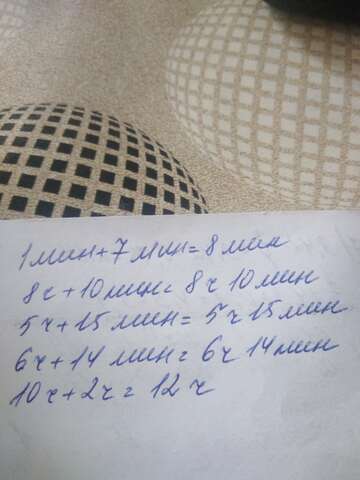 1мин+7мин=8мин
8ч+10мин=8ч10мин
5ч+15мин=5ч15мин
6ч+14мин=6ч14мин
10ч+2ч=12ч